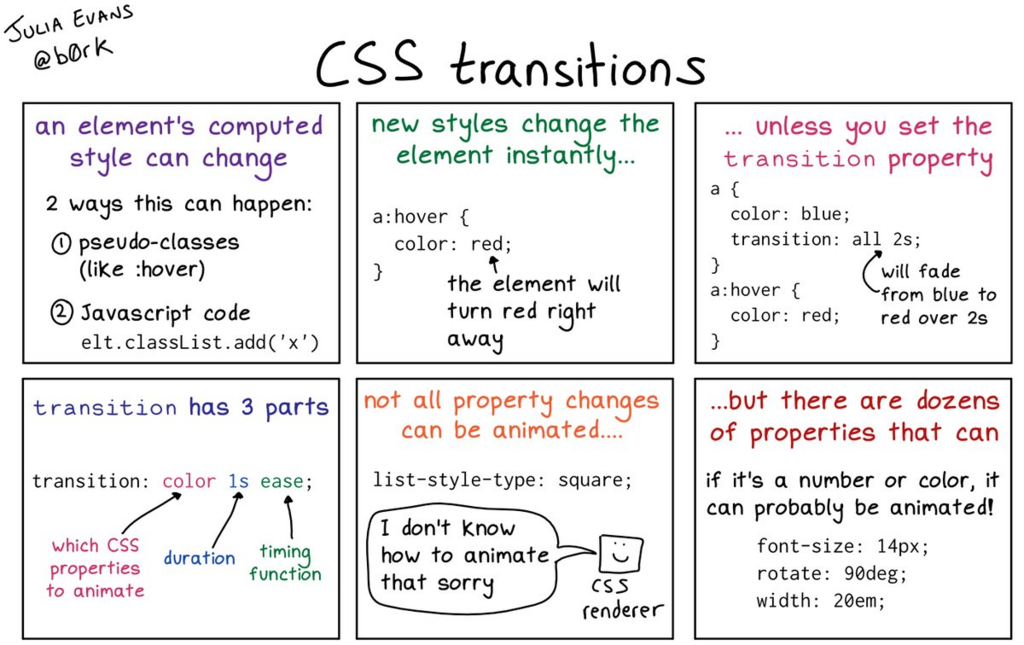 JULIA EVANS
@b0rk
CSS transitions
an element's computed
style can change
2 ways this can happen:
① pseudo-classes
(like :hover)
② Javascript code
elt.classList.add('x')
new styles change the
element instantly...
a:hover {
color: red;
}
the element will
turn red right
away
... unless you set the
transition property
a {
color: blue;
transition: all 2s;
}
a:hover {
color: red;
}
will fade
from blue to
red over 2s
transition has 3 parts
transition: color 1s ease;
which CSS
properties
to animate
duration
timing
function
not all property changes
can be animated....
list-style-type: square;
I don't know
how to animate
that sorry
CSS
renderer
...but there are dozens
of properties that can
if it's a number or color, it
can probably be animated!
font-size: 14px;
rotate: 90deg;
width: 20em;